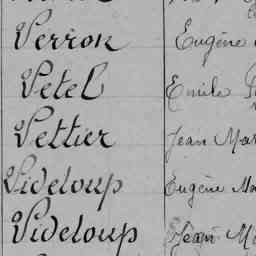 Verron Eugène
Vetel Emile
Vettier Jean Mar
Videloup Eugène
Videloup Jean M